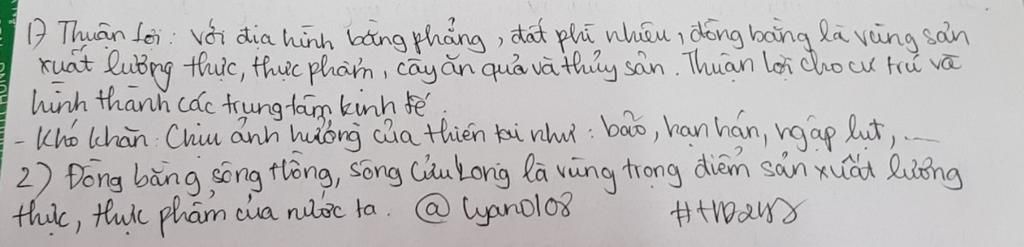 1) Thuận lợi: với địa hình bằng phẳng, đất phì nhiêu, đồng bằng là vùng sản
xuất lương thực, thực phẩm, cây ăn quả và thủy sản. Thuận lợi cho cư trú và
hình thành các trung tâm kinh tế.
- Khó khăn: Chịu ảnh hưởng của thiên tai như: bão, hạn hán, ngập lụt, ...
2) Đồng bằng sông Hồng, sông Cửu Long là vùng trọng điểm sản xuất lương
thực, thực phẩm của nước ta. @ lyano108